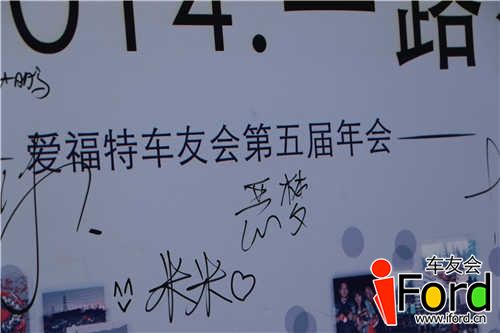 014.一路
爱福特车友会第五届年会——
米米♡
车友会
iFord
www.iford.cn